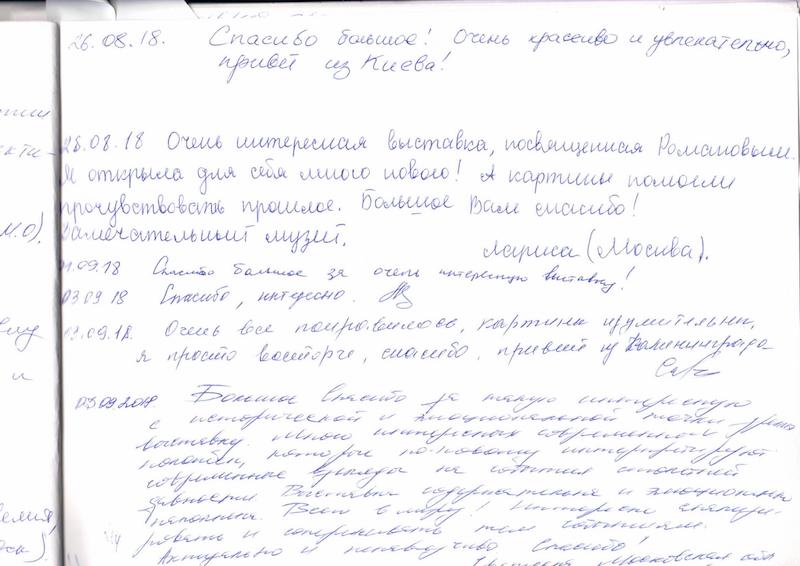 26.08.18. Спасибо большое! Очень красиво и увлекательно,
привет из Киева!
28.08.18 Очень интересная выставка, посвященная Романовым.
Я открыла для себя много нового! А картины помогли
прочувствовать прошлое. Большое Вам спасибо!
Замечательный музей.
Лариса (Москва).
01.09.18 Спасибо большое за очень интересную выставку!
03.09.18 Спасибо, интересно.
03.09.18. Очень все понравилось, картины изумительны,
я просто восторге, спасибо, привет из Калининграда
03.09.2018. Большое Спасибо за такую интересную
с исторической и эмоциональной точки зрения
выставку. Много интересных современных
полотен, которые по-новому интерпретируют
современные взгляды на события столетней
давности. Выставка содержательна и эмоционально
наполнена. Всего в меру! Интересно
и сопереживать тем событиям.
Актуально и ненавязчиво. Спасибо!
Московская обл
М.О).
и